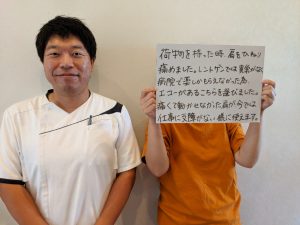 荷物を持った時 肩をひねり
痛めました。レントゲンでは異常がなく
病院で楽しかもらえなかった為、
エコーがあるこちらを選びました。
痛くて動かせなかった肩が今では
仕事に支障がない様に使えます。